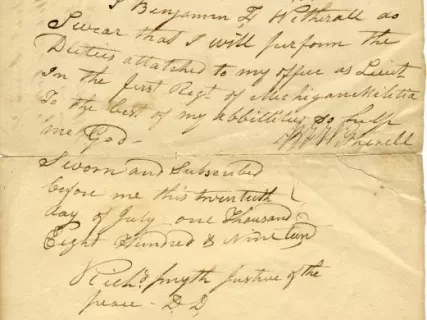 I Benjamin F Witherall do
Swear that I will purform the
Dieties attatched to my office as Lieut
In the first Regt of Michigan Militia
To the best of my abbilities so help
me God -
Sworn and Subscribed
before me this twentieth
day of July one Thousand
Eight Hundred & Nineteen
Richd Smyth Justice of the
peace - D. D.